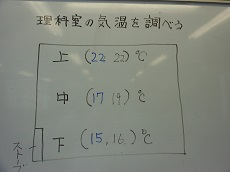 理科室の気温を調べる
上 (22 22)℃
中 (17 19)℃
下 (15,16)℃
ストーブ